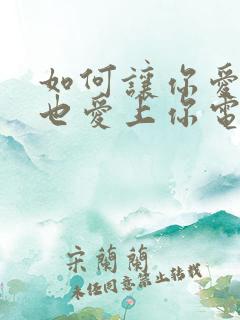 如何讓你愛
也愛上你電
宋蘭蘭
未经同意禁止转载